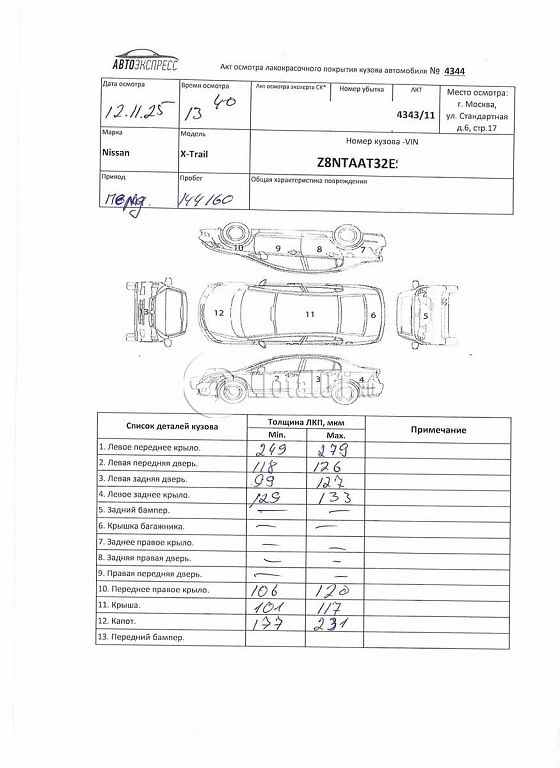 АВТОЭКСПРЕСС
Акт осмотра лакокрасочного покрытия кузова автомобиля № 4344
Дата осмотра Время осмотра Акт осмотра эксперта СК* Номер убытка АКТ Место осмотра:
г. Москва,
ул. Стандартная
д.6, стр.17
12.11.25 13 40 4343/11
Марка Модель Номер кузова -VIN
Nissan X-Trail Z8NTAAT32E
Привод Пробег Общая характеристика повреждения
144160
10 9 8 7
13 12 11 6 5
2 3 4
Список деталей кузова Толщина ЛКП, мкм Примечание
Min. Max.
1. Левое переднее крыло. 249 279
2. Левая передняя дверь. 118 126
3. Левая задняя дверь. 99 127
4. Левое заднее крыло. 129 133
5. Задний бампер. — —
6. Крышка багажника. — —
7. Заднее правое крыло. — —
8. Задняя правая дверь. — —
9. Правая передняя дверь. — —
10. Переднее правое крыло. 106 120
11. Крыша. 101 117
12. Капот. 177 231
13. Передний бампер.